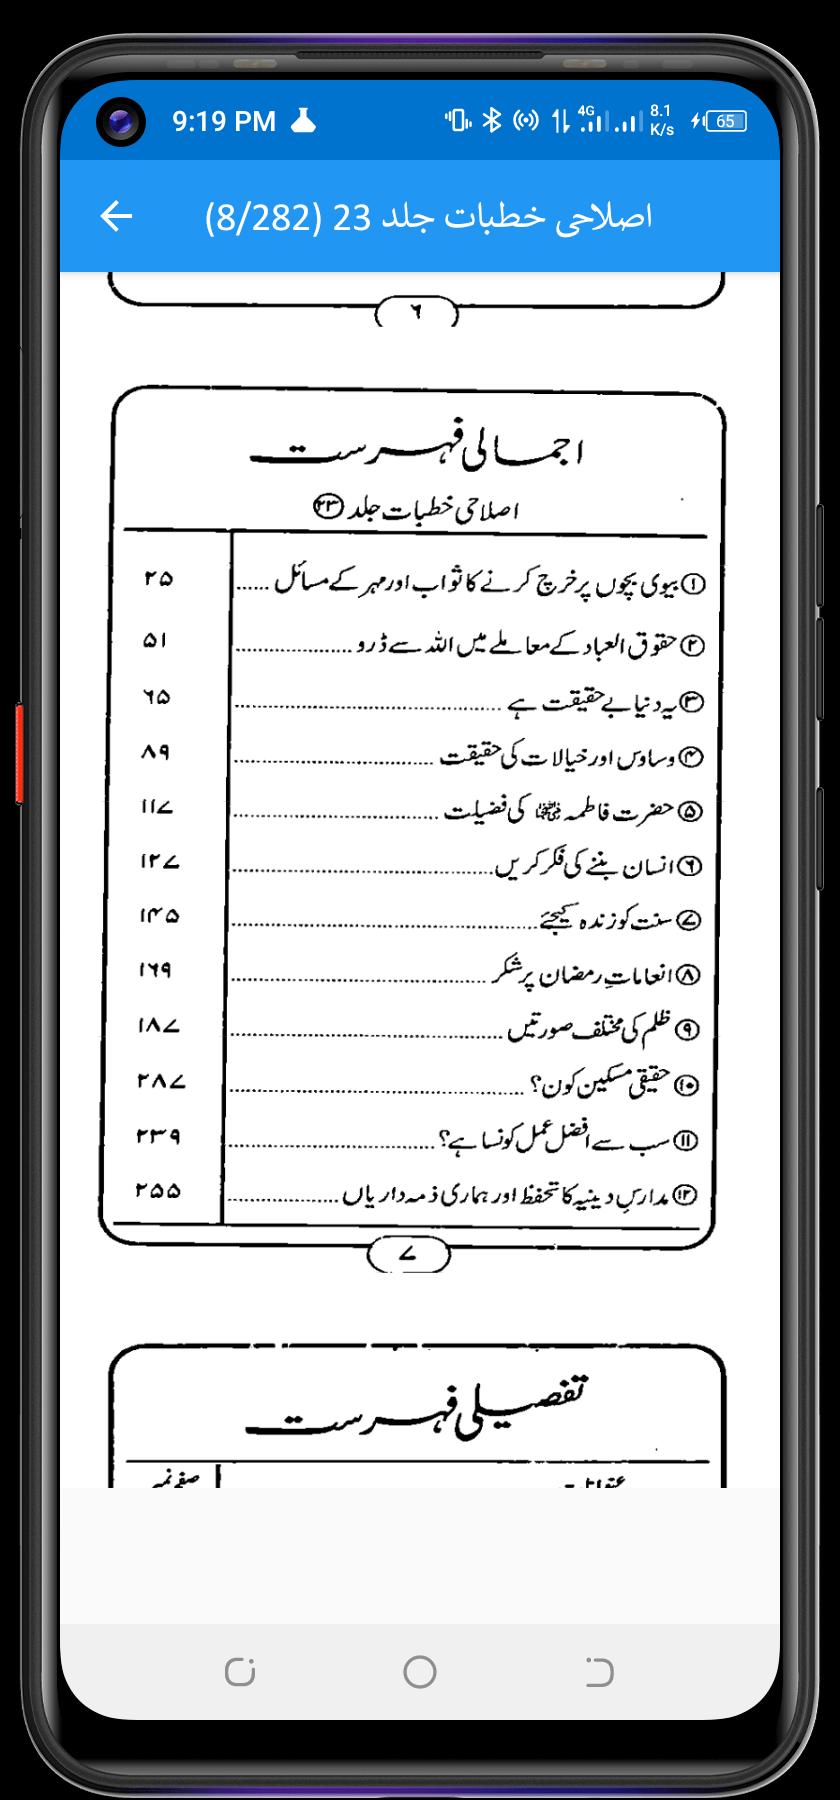 9:19 PM 4G 8.1 K/s 65
اصلاحی خطبات جلد 23 (8/282)
٦
اجمالی فہرست
اصلاحی خطبات جلد ۲۳
۱ بیوی بچوں پر خرچ کرنے کا ثواب اور مہر کے مسائل ..... ۲۵
۲ حقوق العباد کے معاملے میں اللہ سے ڈرو ..... ۵۱
۳ یہ دنیا بے حقیقت ہے ..... ۶۵
۴ وساوس اور خیالات کی حقیقت ..... ۸۹
۵ حضرت فاطمہ رضی اللہ عنہا کی فضیلت ..... ۱۱۷
۶ انسان بننے کی فکر کریں ..... ۱۲۷
۷ سنت کو زندہ کیجئے ..... ۱۴۵
۸ انعاماتِ رمضان پر شکر ..... ۱۶۹
۹ ظلم کی مختلف صورتیں ..... ۱۸۷
۱۰ حقیقی مسکین کون؟ ..... ۲۸۷
۱۱ سب سے افضل عمل کونسا ہے؟ ..... ۲۳۹
۱۲ مدارسِ دینیہ کا تحفظ اور ہماری ذمہ داریاں ..... ۲۵۵
۷
تفصیلی فہرست